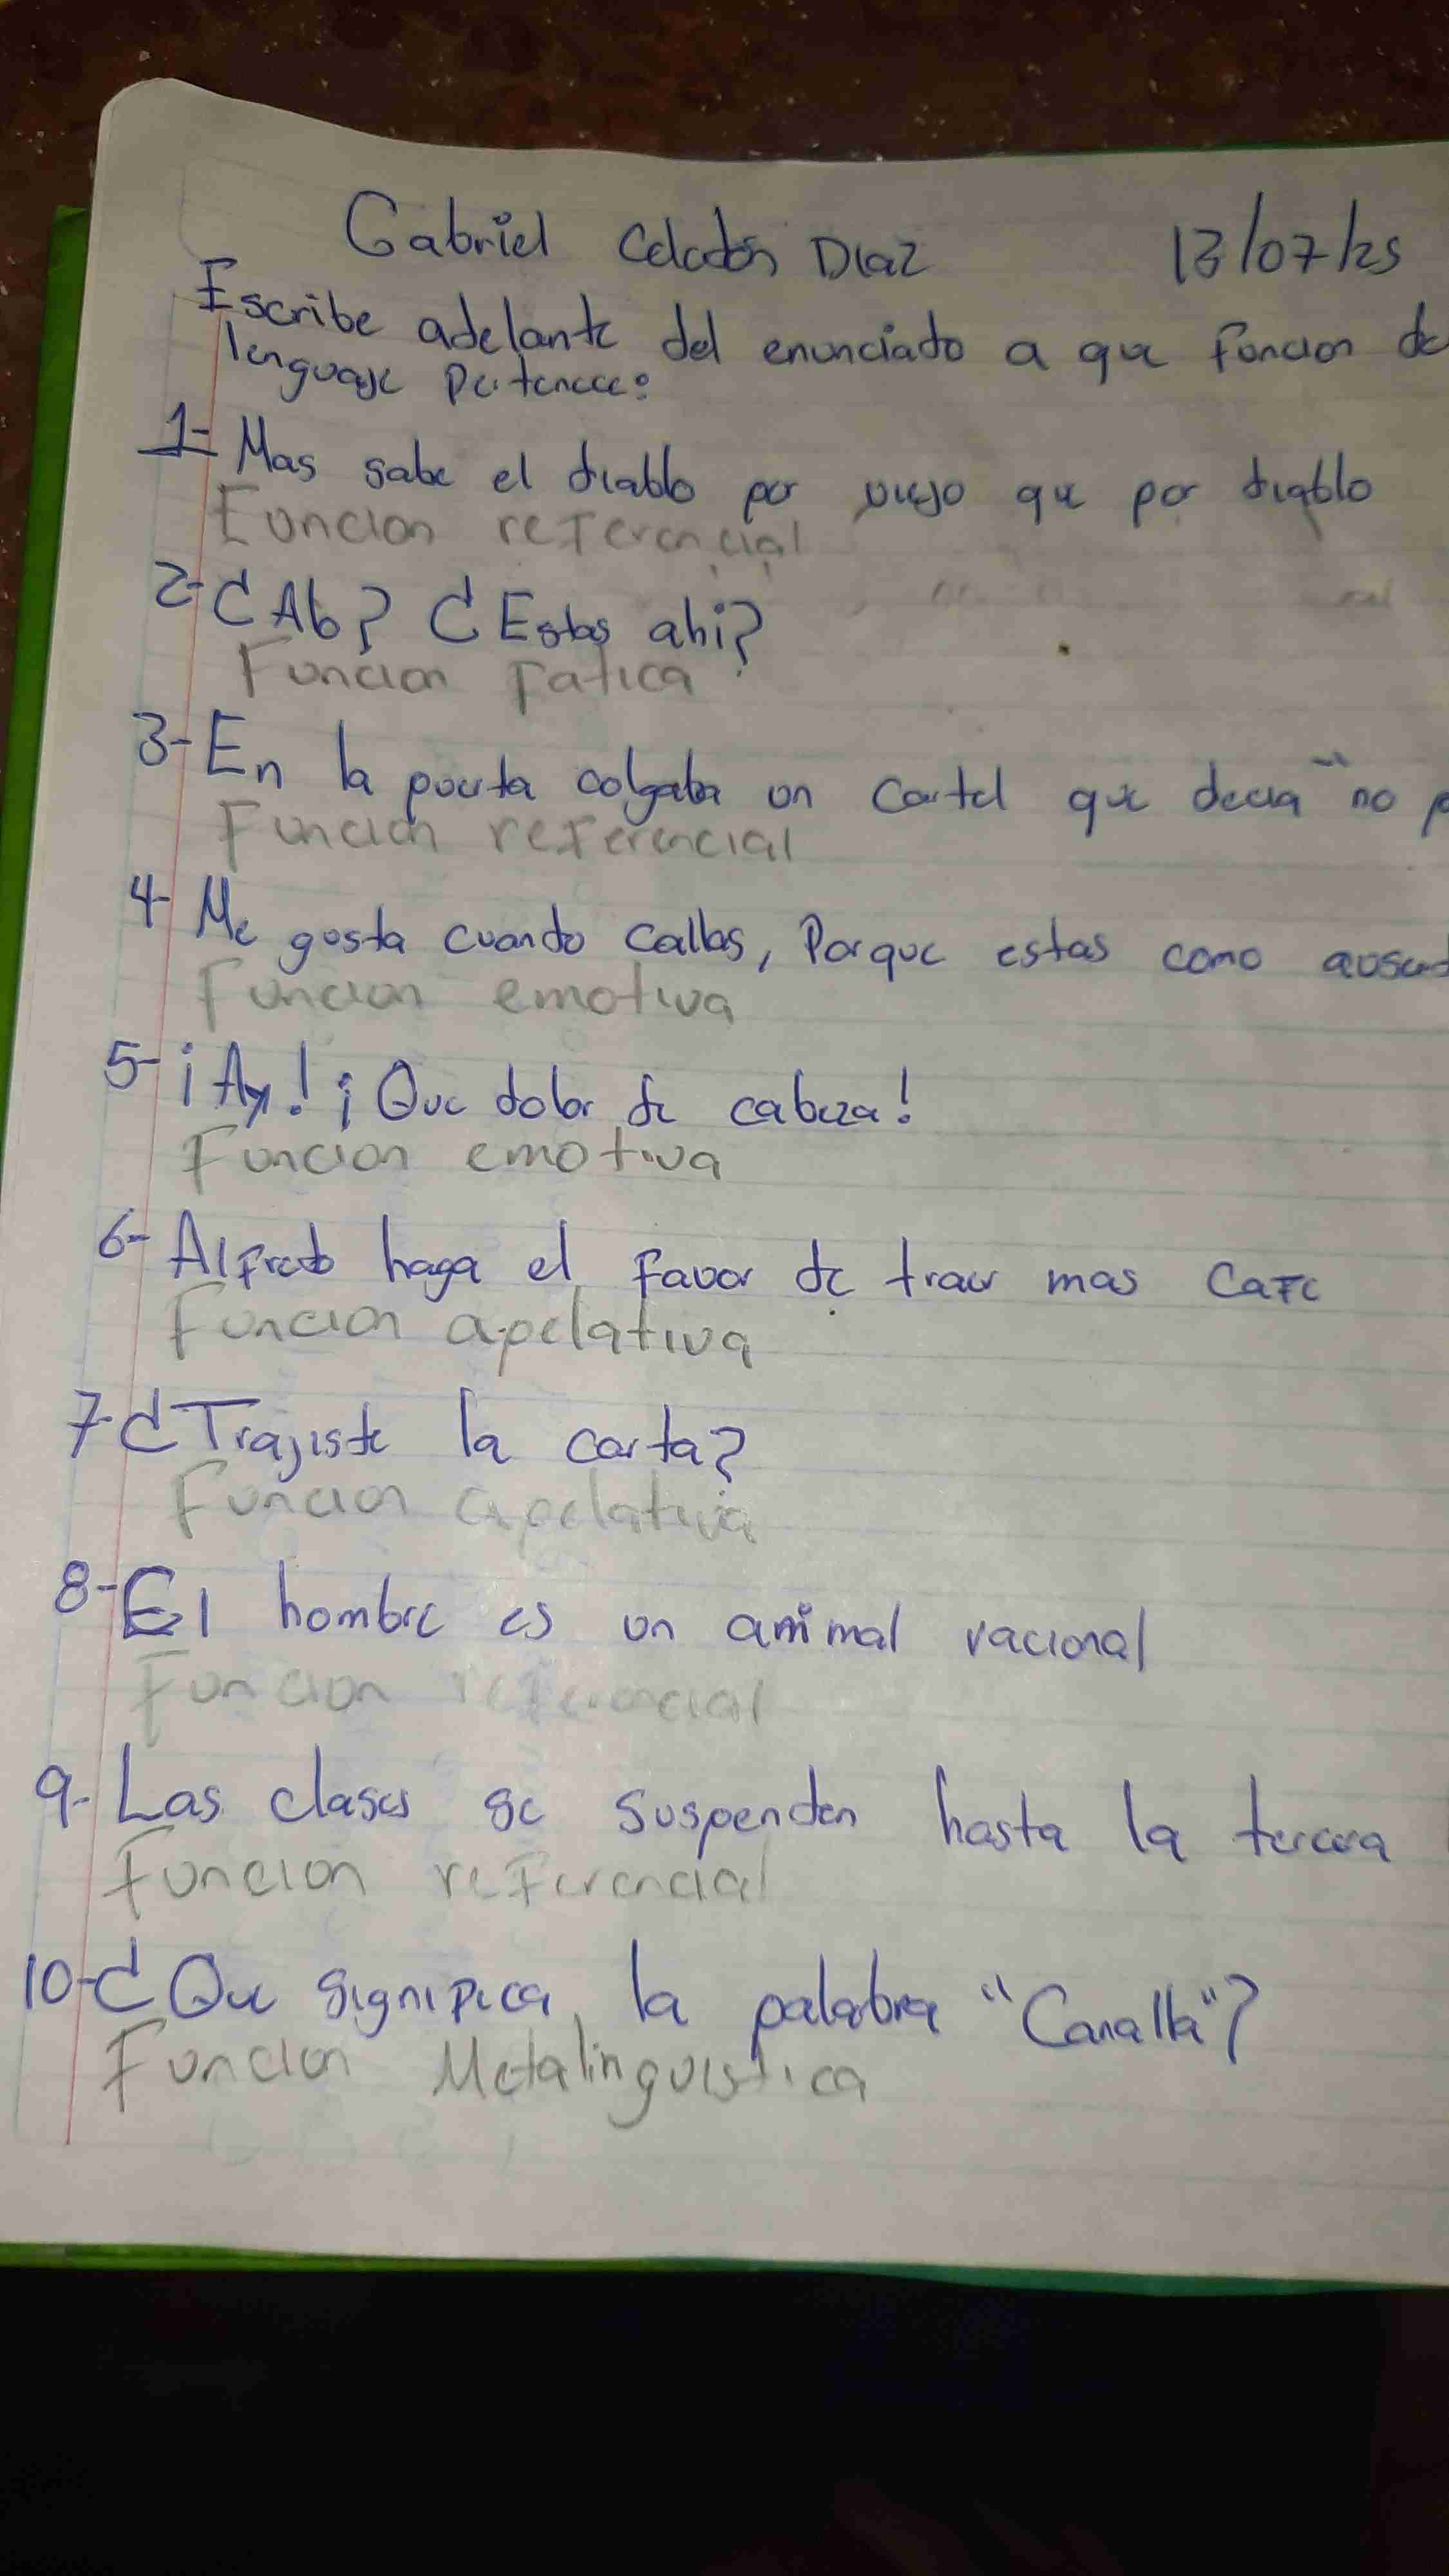 Gabriel Celadon Diaz 13/07/25
Escribe adelante del enunciado a que funcion de
lenguaje pertenece:
1- Mas sabe el diablo por viejo que por diablo
Funcion referencial
2- ¿Alo? ¿Estas ahi?
Funcion Fatica
3- En la puerta colgaba un cartel que decia "no
Funcion referencial
4- Me gusta cuando callas, Porque estas como
Funcion emotiva
5- ¡Ay! ¡Que dolor de cabeza!
Funcion emotiva
6- Alfredo haga el favor de traer mas cafe
Funcion apelativa
7- ¿Trajiste la carta?
Funcion apelativa
8- El hombre es un animal racional
Funcion referencial
9- Las clases se suspenden hasta la tercera
Funcion referencial
10- ¿Que significa la palabra "Canalla"?
Funcion Metalinguistica